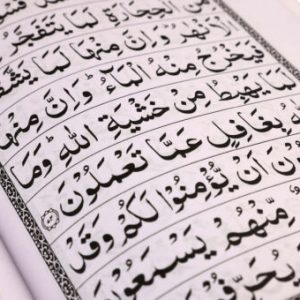 مِنَ الْحِجَارَةِ لَمَا يَتَفَجَّرُ
الْاَنْهٰرُ ؕ وَاِنَّ مِنْهَا لَمَا يَشَّقَّ
فَيَخْرُجُ مِنْهُ الْمَآءُ ؕ وَاِنَّ مِنْهَا
لَمَا يَهْبِطُ مِنْ خَشْيَةِ اللّٰهِ ؕ وَمَا
بِغَافِلٍ عَمَّا تَعْمَلُوْنَ
اَنْ يُّؤْمِنُوْا لَكُمْ وَقَدْ
مِّنْهُمْ يَسْمَعُوْنَ
يُحَرِّفُوْ